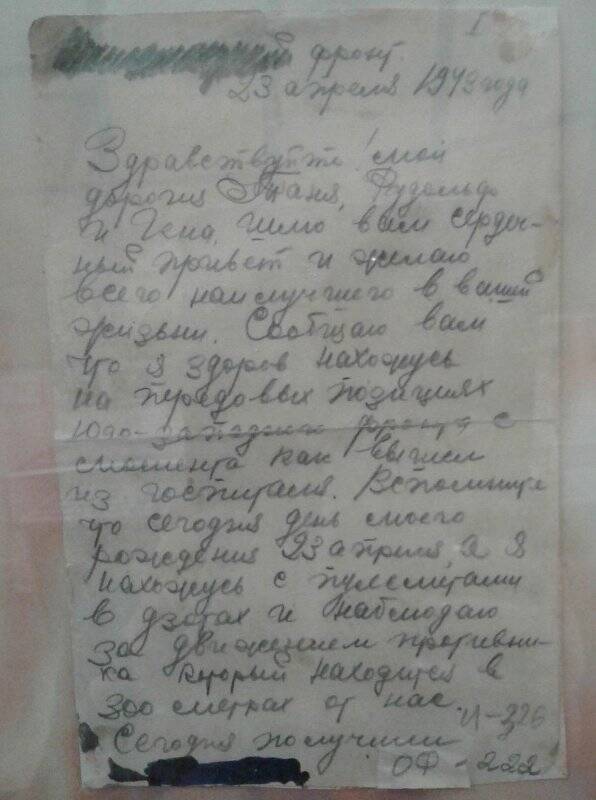 I
фронт
23 апреля 1943 года
Здравствуйте! мои
дорогия Таня, Рудольф
и Гена, шлю вам сердеч-
ный привет и желаю
всего наилучшего в вашей
жизни. Сообщаю вам
что я здоров нахожусь
на передовых позициях
Юго-западного фронта с
момента как вышел
из госпиталя.
что сегодня день моего
рождения 23 апреля а я
нахожусь с пулеметами
в дзотах и наблюдаю
за движением противни-
ка который находится в
300 метрах от нас.
Сегодня получили
И-326
ОФ-222